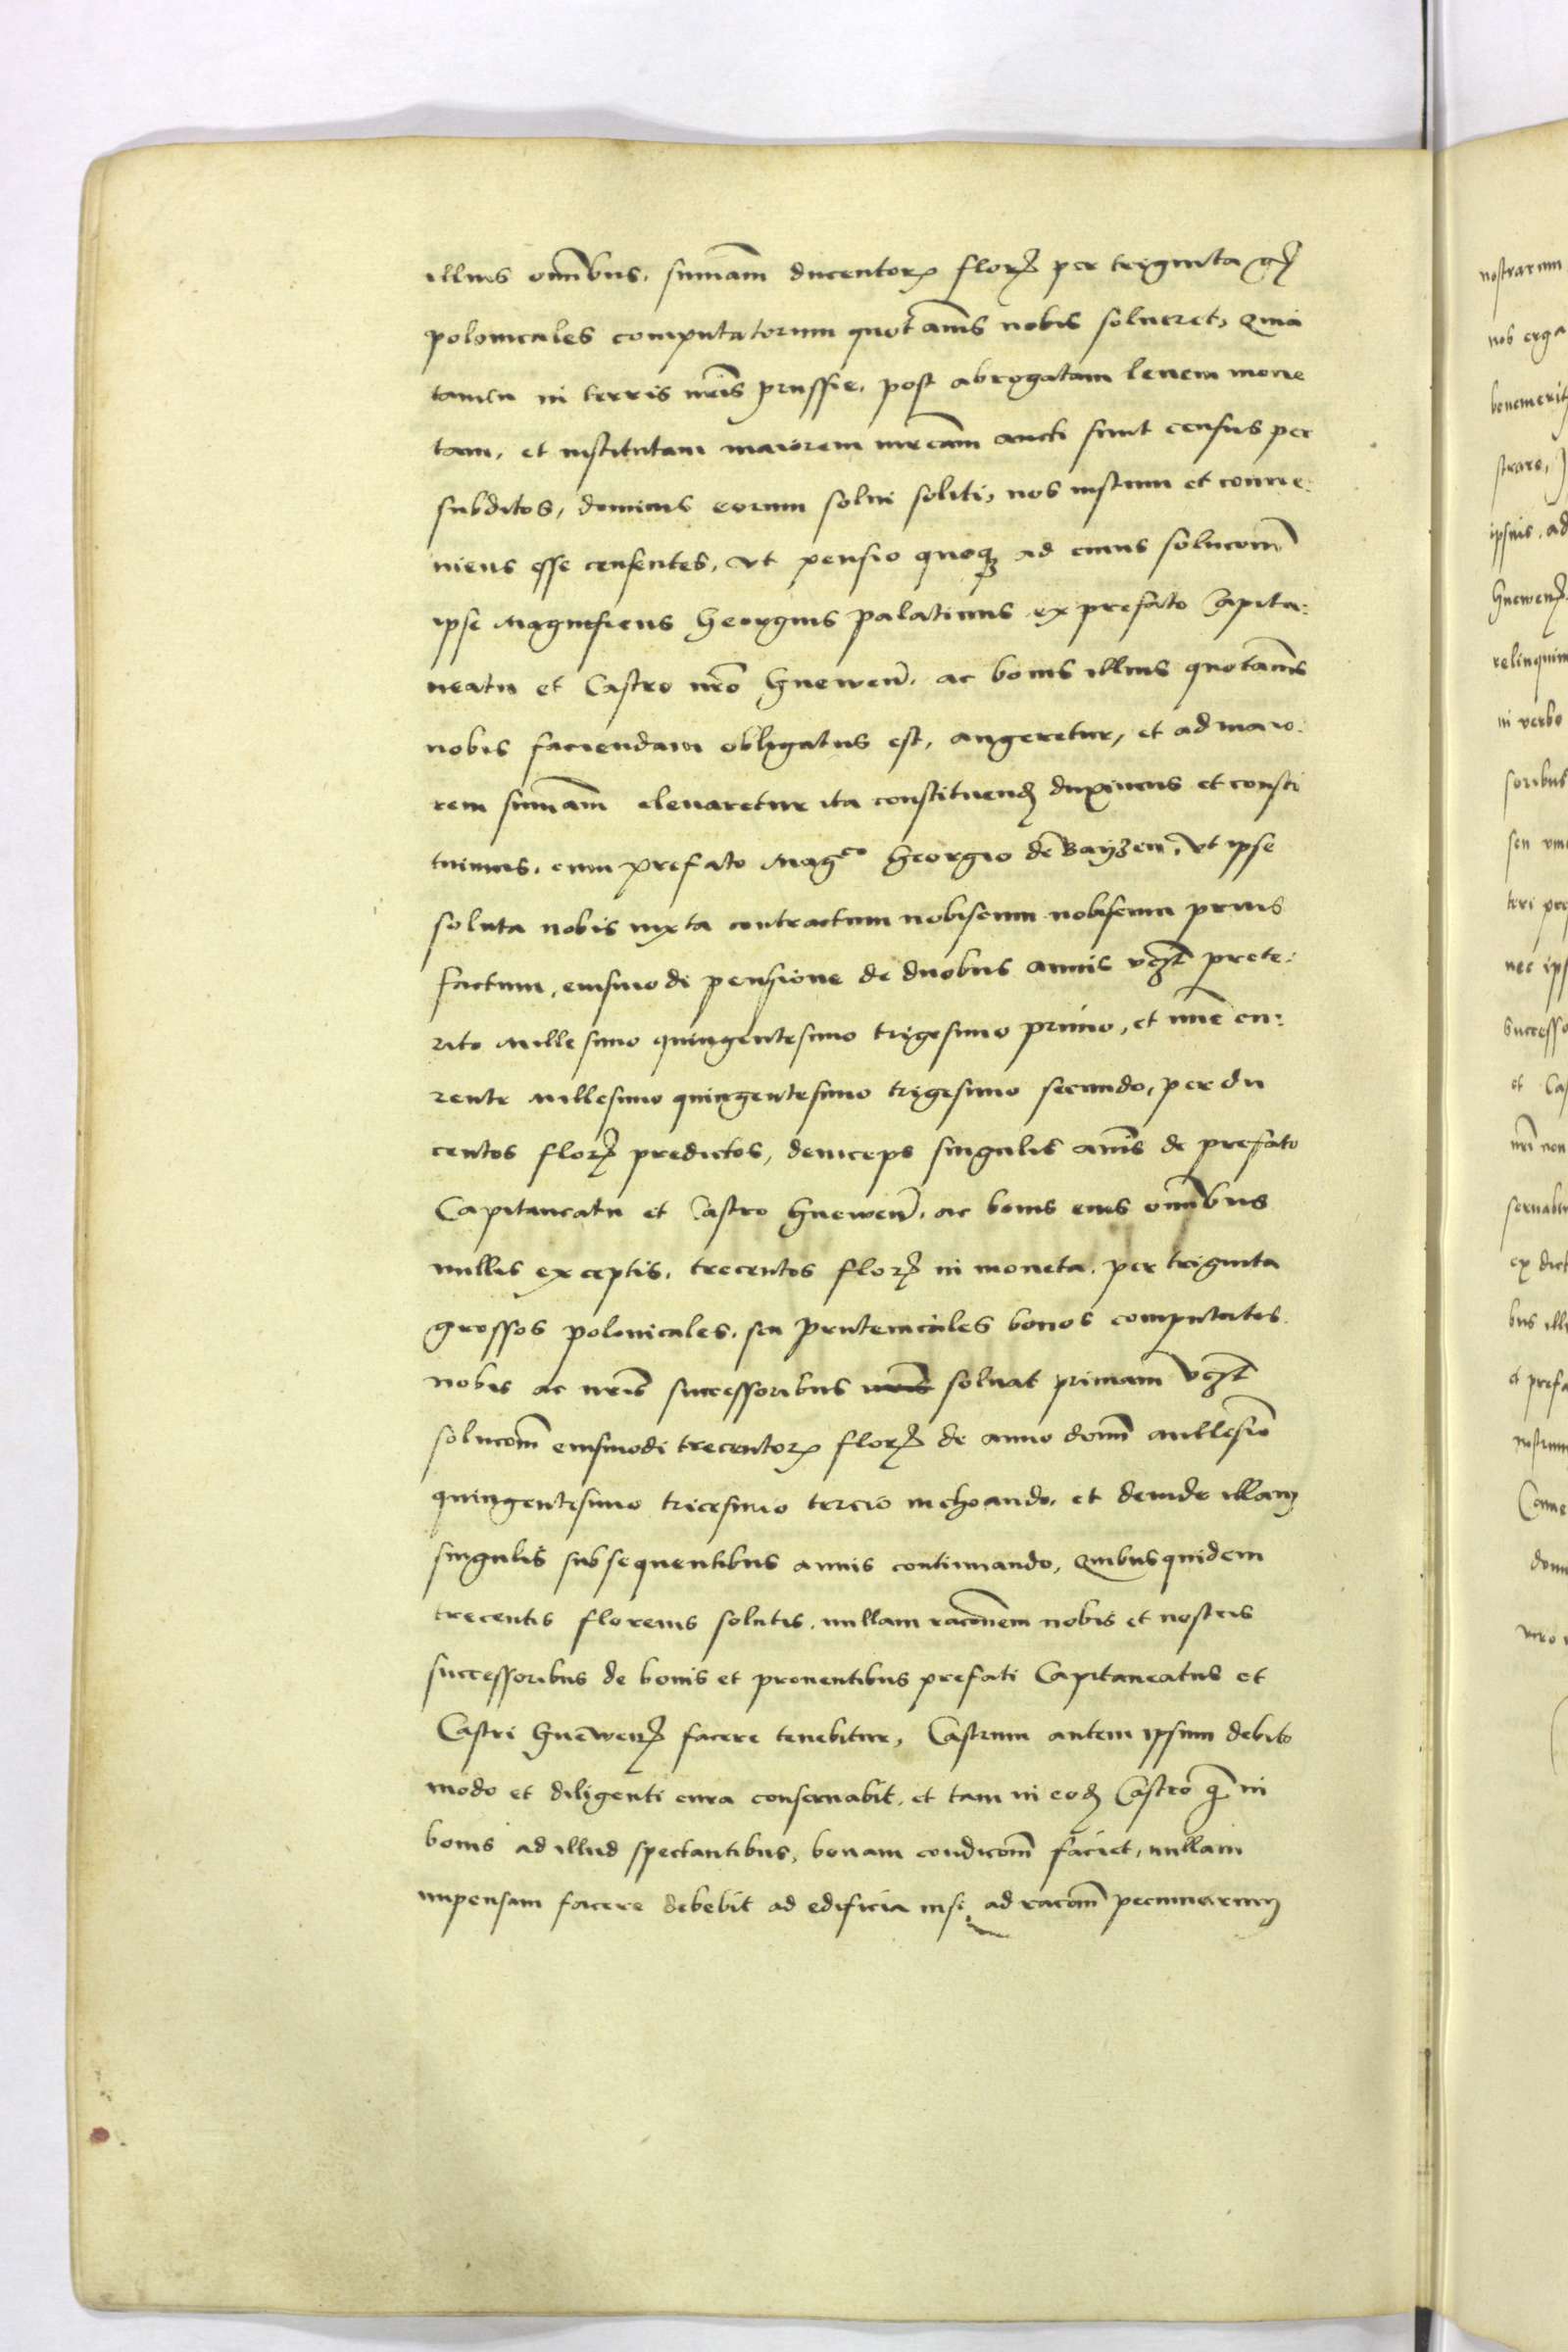 illius om̄ibus, summam ducentorꝝ florꝫ per triginta gr̄
polonicales computatorum quot an̄is nobis solueret, Quia
tamen in terris nr̄is prussie, post abrogatam leuem mone
tam, et institutam maiorem aucti sunt census per
subditos, dominis eorum solui soliti, nos iustum et conue:
niens esse censentes, vt pensio quoqꝫ ad cuius solucom̄
ipse Magnificus Georgius palatinus ex prefato Capita:
neatu et Castro nr̄o Gnewen̄. ac bonis illius quotan̄is
nobis faciendam obligatus est, augeretur, et ad maio:
rem summam eleuaretur ita constituendꝫ duximus et consti
tuimus, cum prefato Magco Georgio de Bayzen, vt ipse
soluta nobis iuxta contractum nobiscum nobiscum prius
factum, eiusmodi pensione de duobus annis vꝫt prete:
rito Millesimo quingentesimo trigesimo primo, et nūc cu:
rente Millesimo quingentesimo trigesimo secundo, per du
centos florꝫ predictos, deinceps singulis an̄is de prefato
Capitaneatu et Castro Gnewen̄. ac bonis eius om̄ibus
nullis exceptis, trecentos florꝫ in moneta, per triginta
grossos polonicales, seu prutenicales bonos computatos
nobis ac nr̄is successoribus nr̄is soluat primam vꝫt
solucom̄ eiusmodi trecentorꝝ florꝫ de anno domī Millesīo
quingentesimo tricesimo tercio inchoando, et deinde illam
singulis subsequentibus annis continuando, Quibusquidem
trecentis florenis solutis, nullam racōnem nobis et nostris
successoribus de bonis et prouentibus prefati Capitaneatus et
Castri Gnewenꝫ facere tenebitur, Castrum autem ipsum debito
modo et diligenti cura conseruabit, et tam in eodꝫ Castro q̄ in
bonis ad illud spectantibus, bonam condicom̄ faciet, nullam
impensam facere debebit ad edificia nisi ad racom̄ pecuniarum
nostrarum
nob erga
benemerit
strare,
ipsius, ad
Gnewenꝫ
relinquim
in verbo
soribus
seu
nec ips
successo
et Cas
nr̄i non
seruabi
ex dict
bus illi
et prefa
nostrum